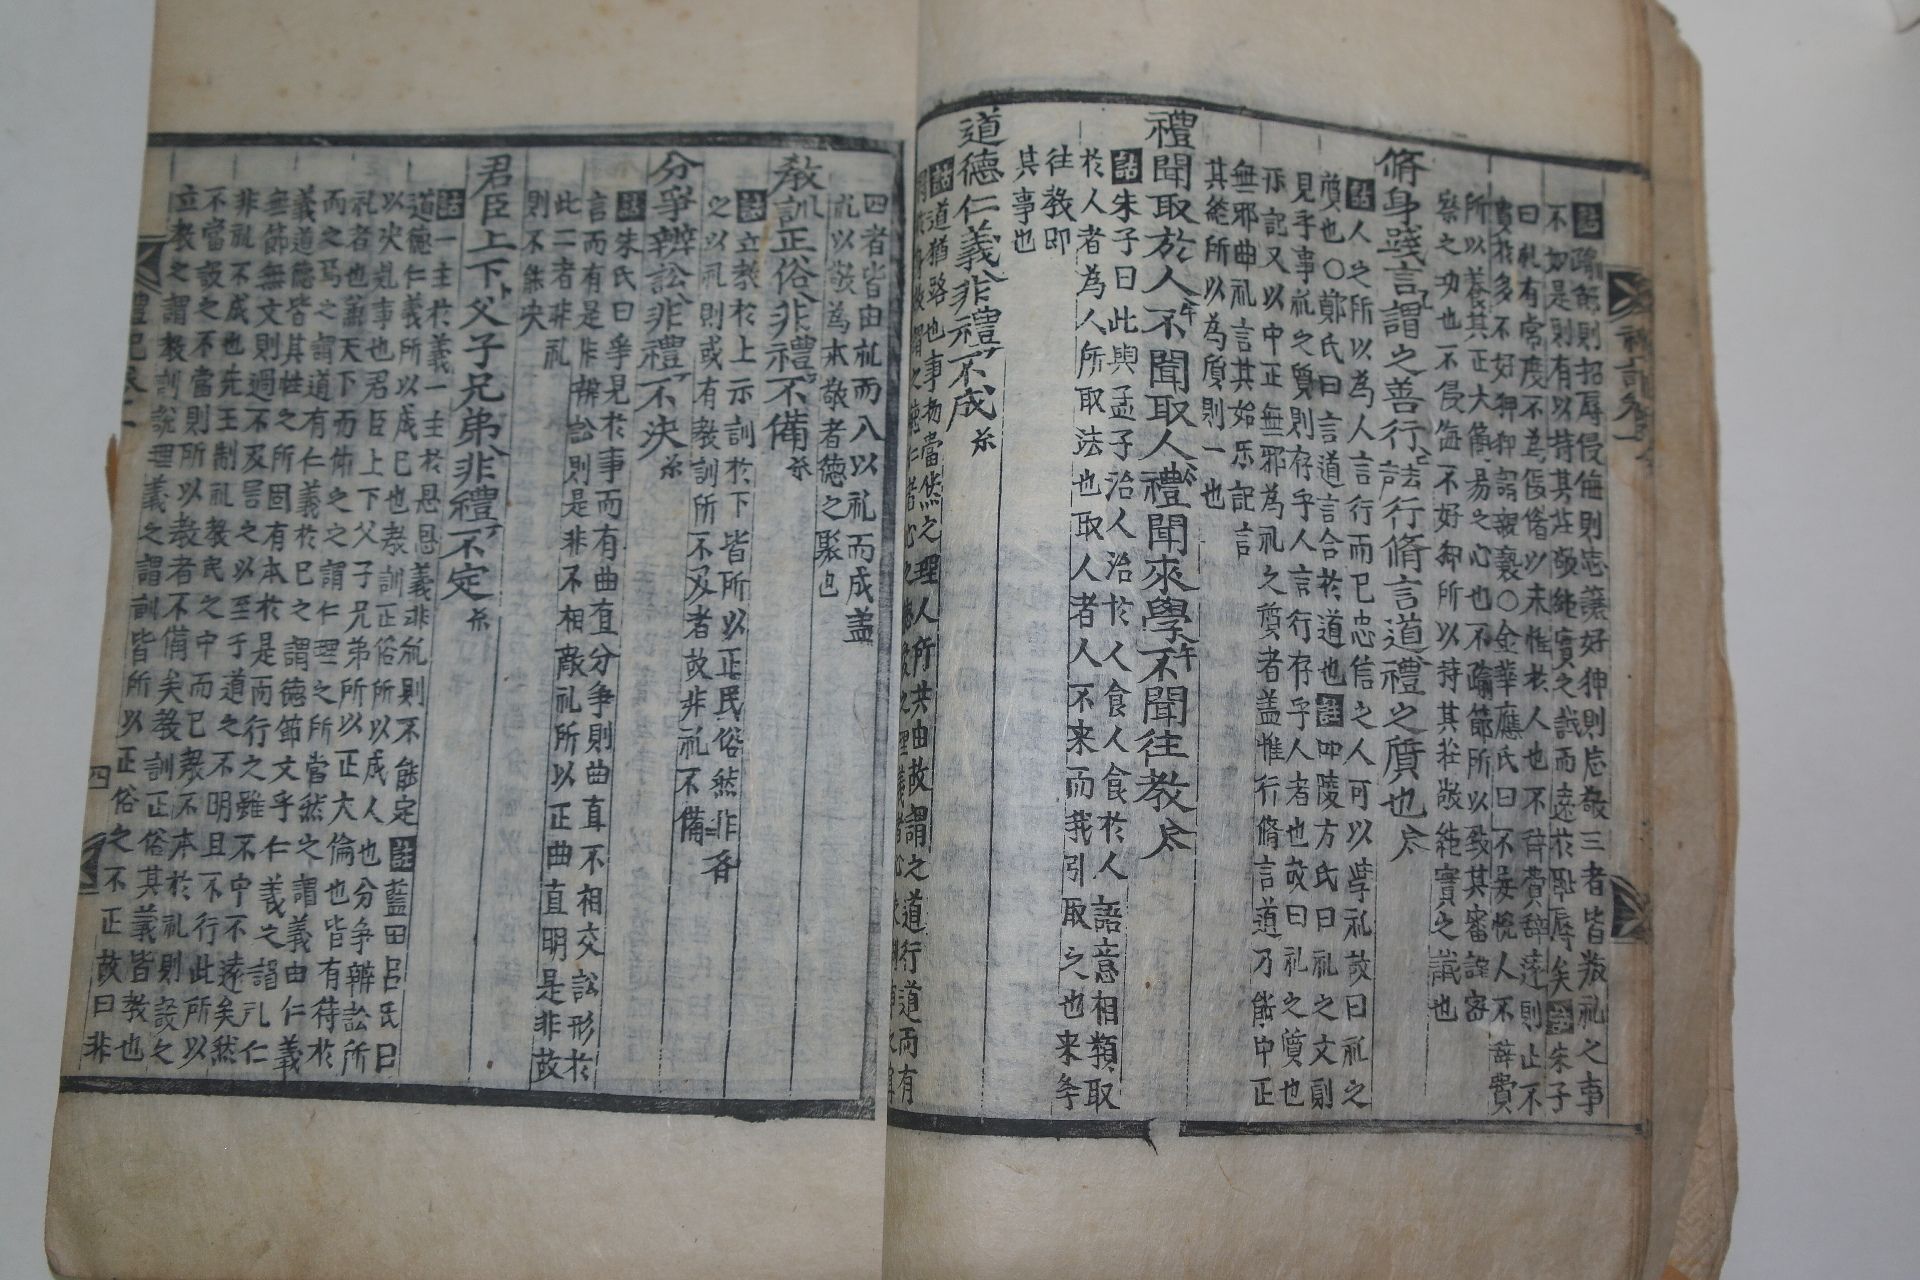 踰節則招辱侵侮則忘讓好狎則忘敬三者皆叛礼之事
不如是則有以持其莊敬純實之誠而遠於恥辱矣 朱子
曰礼有常度不為佞媚以求悅於人也不辭費辭達則止不
貴於多不好狎狎謂親褻○金華應氏曰不妄悅人不辭費
所以養其正大簡易之心也不踰節所以致其審謹密
察之功也不侵侮不好狎所以持其莊敬純實之誠也
脩身踐言謂之善行行脩言道禮之質也
註人之所以為人言行而已忠信之人可以學礼故曰礼之
質也○鄭氏曰言道言合於道也註四陵方氏曰礼之文則
見乎事礼之質則存乎人言行存乎人者也故曰礼之質也
示記又以中正無邪為礼之質者盖惟行脩言道乃能中正
無邪曲礼言其始乐記言
其能所以為質則一也
禮聞取於人不聞取人禮聞來學不聞往教
註朱子曰此與孟子治人治於人食人食於人語意相類取
於人者為人所取法也取人者人不来而我引取之也来學
往教即
其事也
道德仁義非禮不成
註道猶路也事物當然之理人所共由故謂之道行道而有
四者皆由礼而入以礼而成盖
礼以敬為本敬者德之聚也
教訓正俗非禮不備
註立教於上示訓於下皆所以正民俗然非
之以礼則或有教訓所不及者故非礼不備
分爭辨訟非禮不決
註朱氏曰爭見於事而有曲直分爭則曲直不相交訟形於
言而有是非辨訟則是非不相敵礼所以正曲直明是非故
此二者非礼
則不能決
君臣上下父子兄弟非禮不定
註一主於義一主於恩恩義非礼則不能定註藍田呂氏曰
道德仁義所以成己也教訓正俗所以成人也分爭辨訟所
以決羣事也君臣上下父子兄弟所以正大倫也皆有待於
礼者也盖天下而術之之謂仁理之所當然之謂義由仁義
而之焉之謂道有仁義於己之謂德節文乎仁義之謂礼仁
義道德皆其性之所固有本於是而行之雖不中不遠矣然
無節無文則過不及害之以至于道之不明且不行此所以
非礼不成也先王制礼教民之中而已教不本於礼則設之
不當設之不當則所以教者不備矣教訓正俗其義皆教也
立教之謂教訓說理義之謂訓皆所以正俗之不正故曰非
四